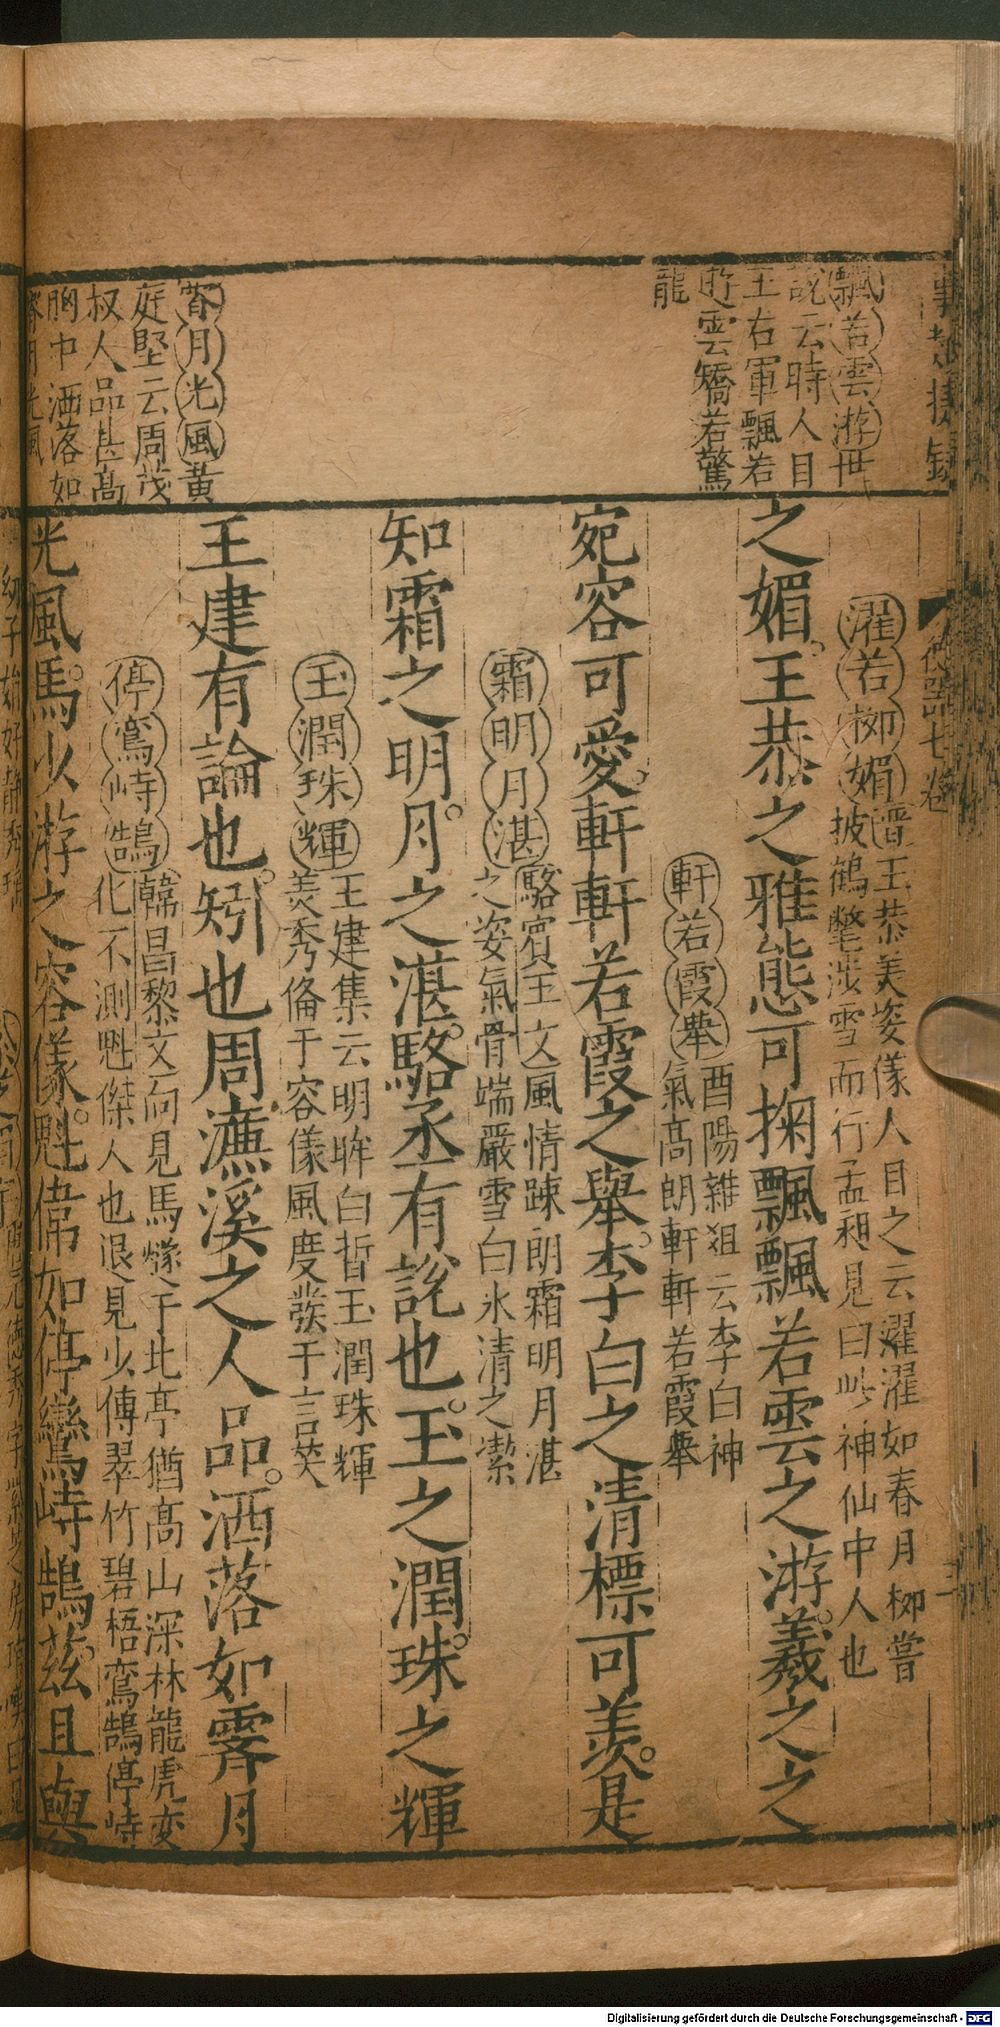 飄若雲游世
說云時人目
王右軍飄若
遊雲矯若驚
龍
濯若桺媚晉王恭美姿儀人目之云濯濯如春月桺嘗
披鶴氅涉雪而行孟昶見曰此神仙中人也
之媚王恭之雅態可掬飄飄若雲之游羲之之
軒若霞舉酉陽雜俎云李白神
氣高朗軒軒若霞舉
宛容可愛軒軒若霞之舉李白之清標可羨是
霜明月湛駱賓王文風情踈朗霜明月湛
之姿氣骨端嚴雪白氷清之潔
知霜之明月之湛駱丞有說也玉之潤珠之輝
玉潤珠輝王建集云明眸白晳玉潤珠輝
美秀脩于容儀風度發于言笑
霽月光風黃
庭堅云周茂
叔人品甚高
胸中洒落如
霽月光風
王建有論也矧也周濂溪之人品洒落如霽月
停鸞峙鵠韓昌黎文向見馬燧于北亭猶高山深林龍虎变
化不測魁傑人也退見少傅翠竹碧梧鸞鵠停峙
光風馬少游之容儀魁偉如停鸞峙鵠茲且與
Digitalisierung gefördert durch die Deutsche Forschungsgemeinschaft - DFG